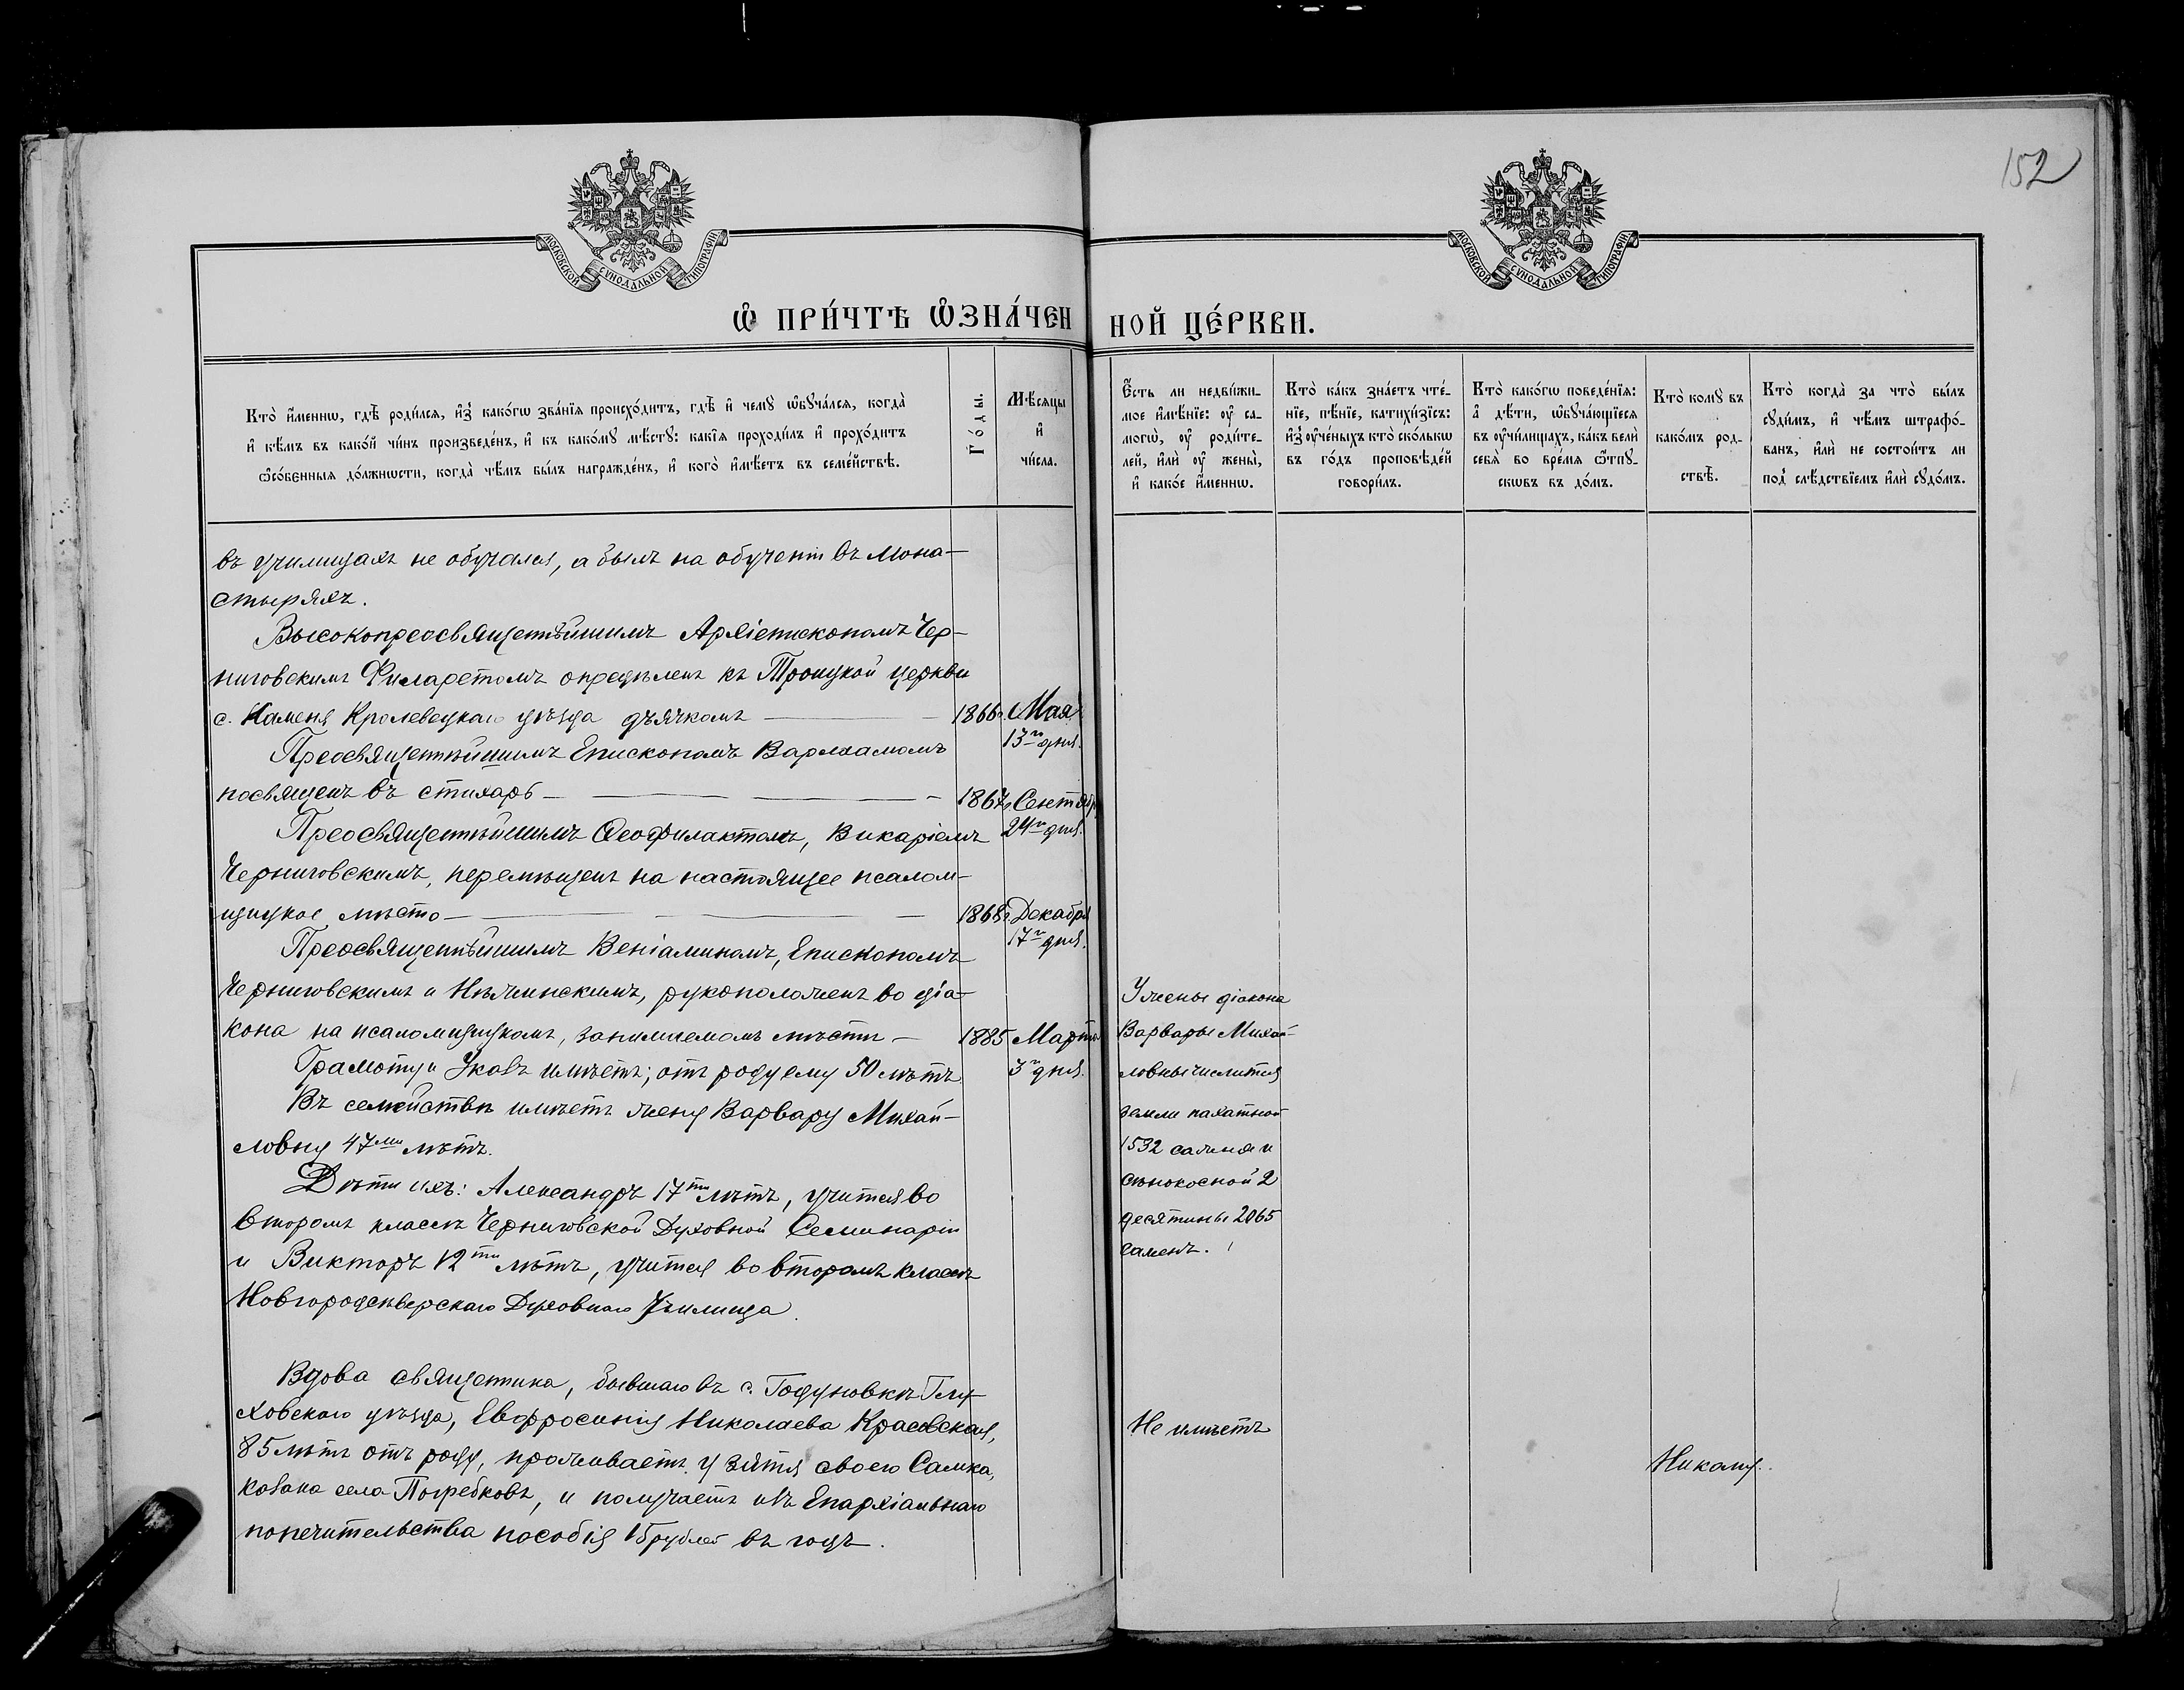 152
МОСКОВСКОЙ СѴНОДАЛЬНОЙ ТИПОГРАФІИ
МОСКОВСКОЙ СѴНОДАЛЬНОЙ ТИПОГРАФІИ
Ѽ ПРИ́ЧТѢ Ѽ҆ЗНА́ЧЕННОЙ ЦЕ́РКВИ.
Кто̀ и҆́меннѡ, гдѣ̀ роди́лся, и҆з̾ како́гѡ зва́нїя происхо́дитъ, гдѣ̀ и҆ чемꙋ̀ ѡ҆бꙋча́лся, когда̀
и҆ кѣ́мъ въ како́й чи́нъ произведе́нъ, и҆ къ како́мꙋ мѣ́стꙋ: какі̑я проходи́лъ и҆ прохо́дитъ
ѻ҆со́бенныя до́лжнѡсти, когда̀ чѣ́мъ бы́лъ награжде́нъ, и҆ кого̀ и҆мѣ́етъ въ семе́йствѣ.
Го́ды.
Мѣ́сяцы
и҆
чи́сла.
Є҆́сть ли недви́жи-
мое и҆мѣ́нїе: ᲂу҆ са-
могѡ̀, ᲂу҆ роди́те-
лей, и҆лѝ ᲂу҆ жены̀,
и҆ како́е и҆́меннѡ.
Кто̀ ка́къ зна́етъ чте́-
нїе, пѣ́нїе, катихи́зїсъ:
и҆з̾ ᲂу҆че́ныхъ кто̀ ско́лькѡ
въ го́дъ проповѣ́дей
говори́лъ.
Кто̀ како́гѡ поведе́нїя:
а҆ дѣ́ти, ѡ҆бꙋча́ющїеся
въ ᲂу҆чи́лищахъ, ка́къ велѝ
себя̀ во вре́мя ѿпꙋ-
скѡвъ въ до́мъ.
Кто̀ комꙋ̀ въ
како́мъ род-
ствѣ̀.
Кто̀ когда̀ за что̀ бы́лъ
сꙋди́мъ, и҆ чѣ́мъ штрафо́-
ванъ, и҆лѝ не состои́тъ ли
под̾ слѣ́дствїемъ и҆лѝ сꙋдо́мъ.
въ училищахъ не обучался, а былъ на обученіи въ мона-
стыряхъ.
Высокопреосвященнѣйшимъ Архіепископомъ Чер-
ниговскимъ Филаретомъ опредѣленъ къ Троицкой церкви
с. Каменя Кролевецкаго уѣзда дьячкомъ — 1866г. Мая
13го дня.
Преосвященнѣйшимъ Епископомъ Варлаамомъ
посвященъ въ стихарь — 1867г. Сентябр
24го дня.
Преосвященнѣйшимъ Ѳеофилактомъ, Викаріемъ
Черниговскимъ, перемѣщенъ на настоящее псалом-
щицкое мѣсто — 1868г. Декабря
17го дня.
Преосвященнѣйшимъ Веніаминомъ, Епископомъ
Черниговскимъ и Нѣжинскимъ, рукоположенъ во діа-
кона на псаломщицкомъ, занимаемомъ мѣстѣ — 1885 Марта
3го дня.
Грамоту и Указъ имѣетъ; отъ роду ему 50 лѣтъ
Въ семействѣ имѣетъ жену Варвару Михай-
ловну 47ми лѣтъ.
Дѣти ихъ: Александръ 17ти лѣтъ, учится во
второмъ классѣ Черниговской Духовной Семинаріи
и Викторъ 12ти лѣтъ, учится во второмъ классѣ
Новгородсѣверскаго Духовнаго Училища.
У жены діакона
Варвары Михай-
ловны числится
земли пахатной
1532 сажня и
сѣнокосной 2
десятины 2065
сажень.
Вдова священника, бывшаго въ с. Годуновкѣ Глу-
ховскаго уѣзда, Евфросинія Николаева Красовская,
85 лѣтъ отъ роду, проживаетъ у зятя своего Самка,
козака села Погребковъ, и получаетъ изъ Епархіальнаго
попечительства пособія 15 рублей въ годъ.
Не имѣетъ
Никому.